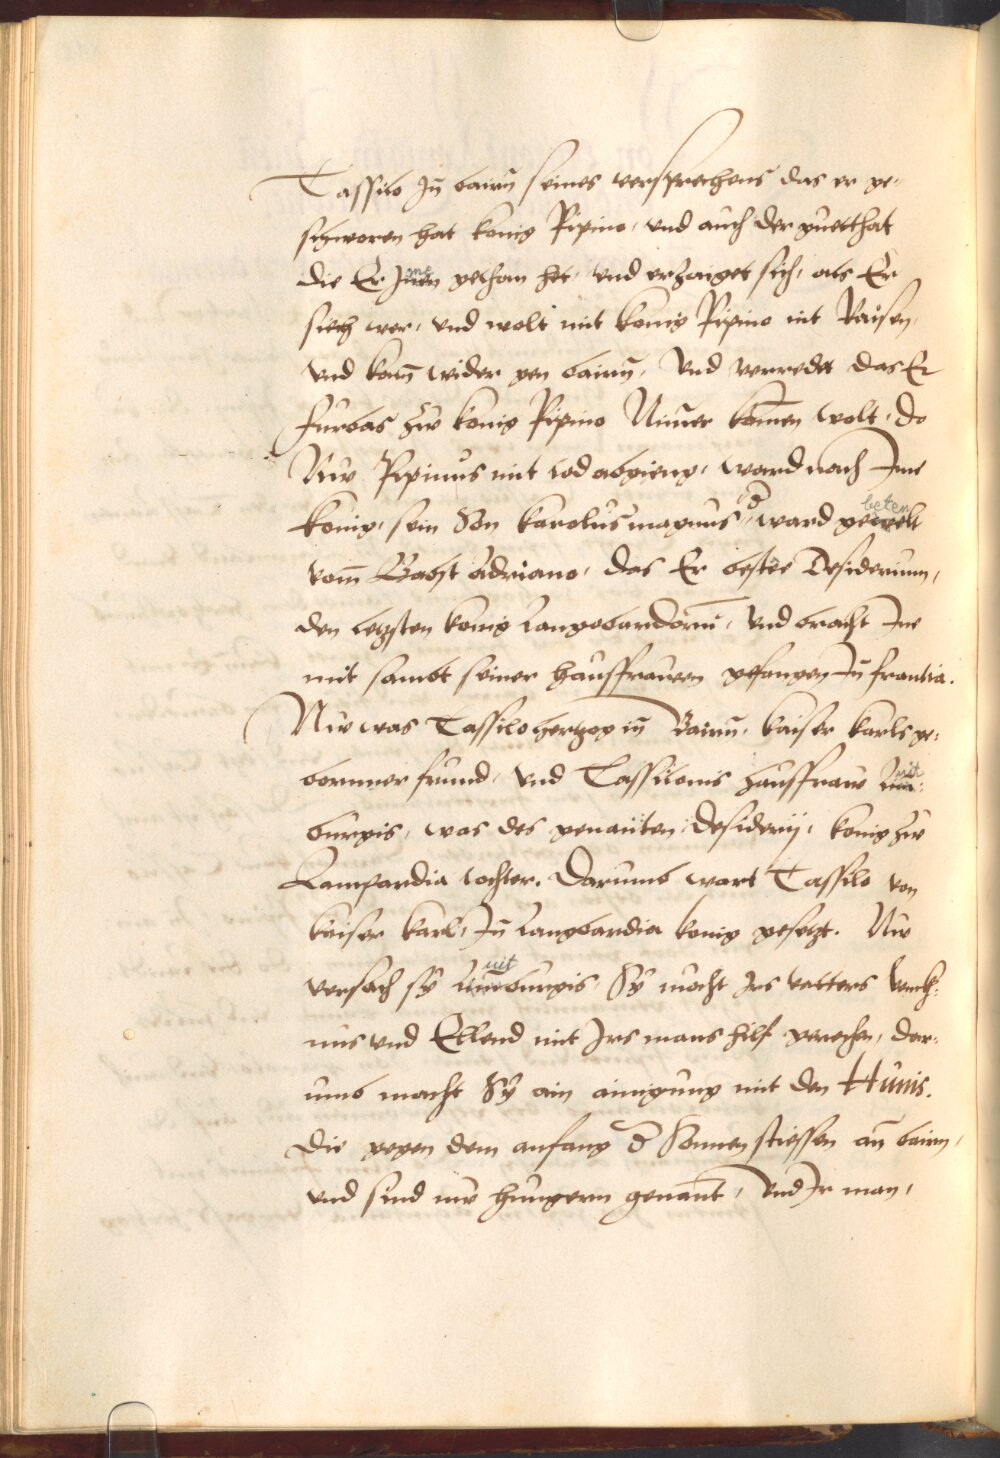 Tassilo Jn̄ bairn̄ seines versprechens das er ge-
schworen hat konig Pipino, und auch der guetthat
die Er Jnen me gethan het, und erzaiget sich, als Er
siech wer, und wolt mit konig Pipino nit Raisen,
und kam̄ wider gen bairn̄, Und verredet das Er
furbas zw konig Pipino Nim̄er kōmen wolt, do
Nw Pipinus mit tod abgieng, ward nach Jme
konig, sein Son karolus magnus, d̄ ward gewelt beten
vom̄ Babst Adriano, das Er bestee Desiderium,
den letzsten konig Langobardorum̄, und bracht Jne
mit sambt seiner hausfrawen gefangen Jn̄ frantia.
Nw was Tassilo hertzog in̄ Bairn̄, kaiser karls ge-
bornner freund, und Tassilonis hausfraw Lui- uit
burgis, was des genan̄ten Desiderij, konig zw
Lampardia tochter. Darumb wart Tassilo von
kaiser karl, Jn̄ Langbardia konig gesetzt. Nw
versach sy uit burgis, Sy mocht Jrs vatters
nus und Ellend mit Jrs mans hilf gerechen, dar-
umb macht Sy ain ainigung mit den Hunis.
Die gegen dem anfang d̄ Sonnen stiessen an̄ bairn,
und sind nw hungern genan̄t, und Jr man,